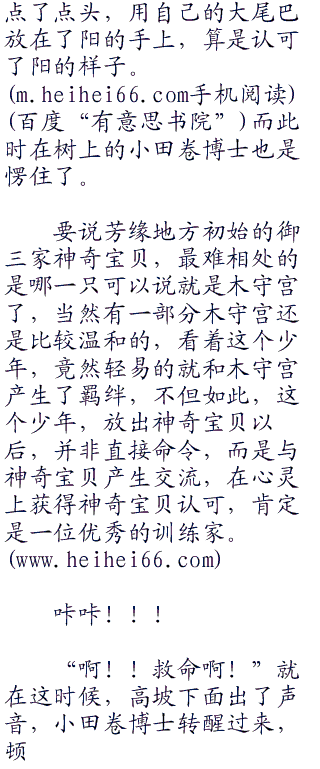 点了点头，用自己的大尾巴
放在了阳的手上，算是认可
了阳的样子。
(m.heihei66.com手机阅读)
(百度“有意思书院”)而此
时在树上的小田卷博士也是
愣住了。
要说芳缘地方初始的御
三家神奇宝贝，最难相处的
是哪一只可以说就是木守宫
了，当然有一部分木守宫还
是比较温和的，看着这个少
年，竟然轻易的就和木守宫
产生了羁绊，不但如此，这
个少年，放出神奇宝贝以
后，并非直接命令，而是与
神奇宝贝产生交流，在心灵
上获得神奇宝贝认可，肯定
是一位优秀的训练家。
(www.heihei66.com)
咔咔！！！
“啊！！救命啊！”就
在这时候，高坡下面出了声
音，小田卷博士转醒过来，
顿